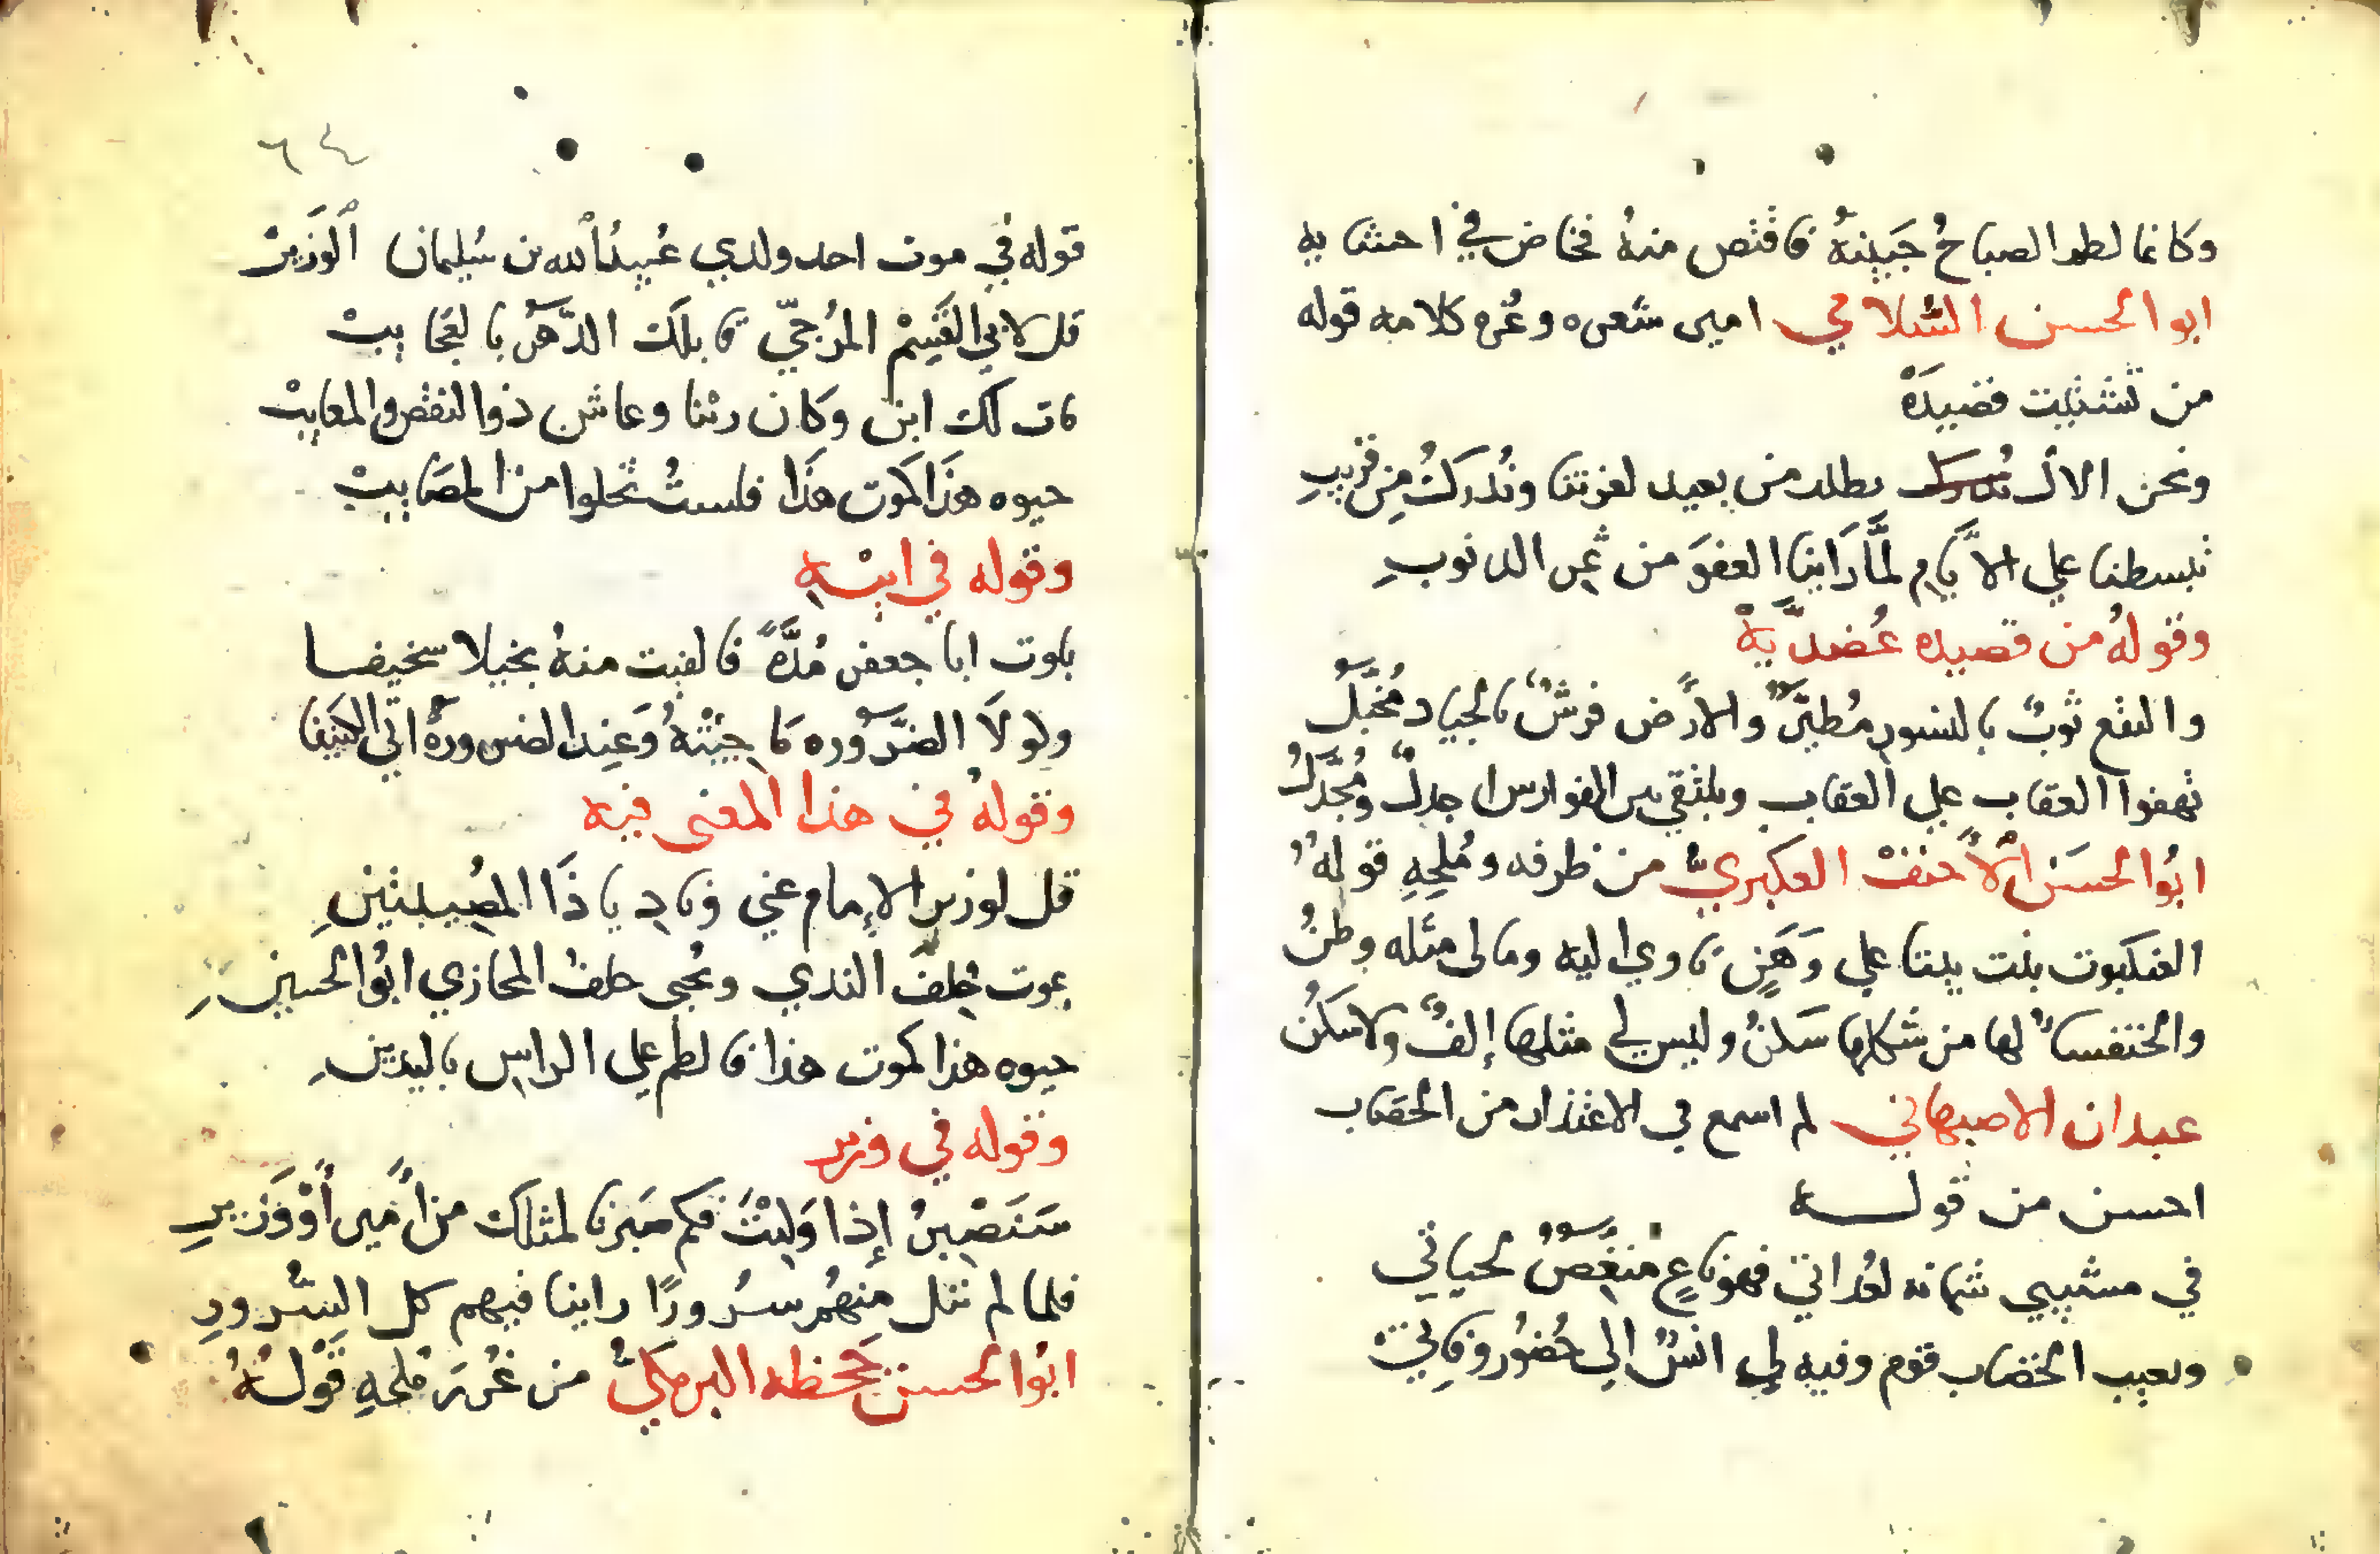 وكانما لطم الصباحُ جَبِينهُ فاقتص منهُ فخاض في احشايه
ابوالحسن السَّلامي امير شعره وغُره كلامه قوله
من تشبيت قصيدَهْ
ونحن الاُلى نطلب من بعيد لعزتنا ونُدركُ مِن قريبِ
تبسطنا علي الاَيام لمَّا رَاينا العفوَ من ثمر الذنوبِ
وقولهُ من قصيده عُضديَّهْ
والنقع ثوبٌ بالنسورِ مُطيَّرٌ والارض فرشٌ بالجياد مُخيَّلُ
تهفوا العقاب علي العقاب ويلتقي بين الفوارس اجدلٌ ومُجَدَّلُ
ابُوالحسَن الاَحنفْ العكبريُّ من ظرفه ومُلحِهِ قولهُ
العنكبوت بنت بيتا علي وَهَنٍ تاوي اليه ومالى مثله وطنُ
والخنفساُ لها من شكلها سَكنُ وليس لي مثلها إلفٌ ولاسكنُ
عبدان الاصبهاني لم اسمع في الاعتذار من الخضاب
احسن من قوله
في مشيبي شماته لعُداتي فهو ناعٍ مُنغِّصٌ لحياتي
ويعيب الخضاب قوم وفيه لي انسٌ الي حُضُور وفاتيْ
٦٤
قوله في موت احد ولدي عُبيدُالله بن سُليمان اَلوَزِيرْ
قل لابي القَسِمْ المُرجّي قابلك الدَّهرُ بالعجايبْ
مات لك ابن وكان زينا وعاش ذوالنقص والمعايبْ
حيوه هذَا كموت هذَا فلستُ تخلوا من المصَايبْ
وقوله في ابنهِ
بلوت ابا جعفر مُدَّهً فالفيت منهُ بخيلا سخيفا
ولولَا الضرُوره مَا جِئتهُ وَعِند الضرورهُ اتي الكنِيفا
وقولهُ في هذا المعنى فيه
قل لوزير الإمام عني ونادِ يا ذَا المُصِيبتينِ
يموت خِلفُ الندي ويحيى خلفُ المخازي ابُوالحسينِ
حيوه هذا كموت هذا فالطم علي الراس باليدينِ
وقوله في وزير
سَنَصْبِرُ إذا وَلِيْتَ فكم صَبرنا لمثلك من اَمير اَوْ وَزيرِ
فلما لم ننل مِنهُم سُرورًا راينا فيهم كل السُّرورِ
ابُوالحسن جحظه البرمكيُّ من غُررَ مُلحِهِ قَوْلهُ